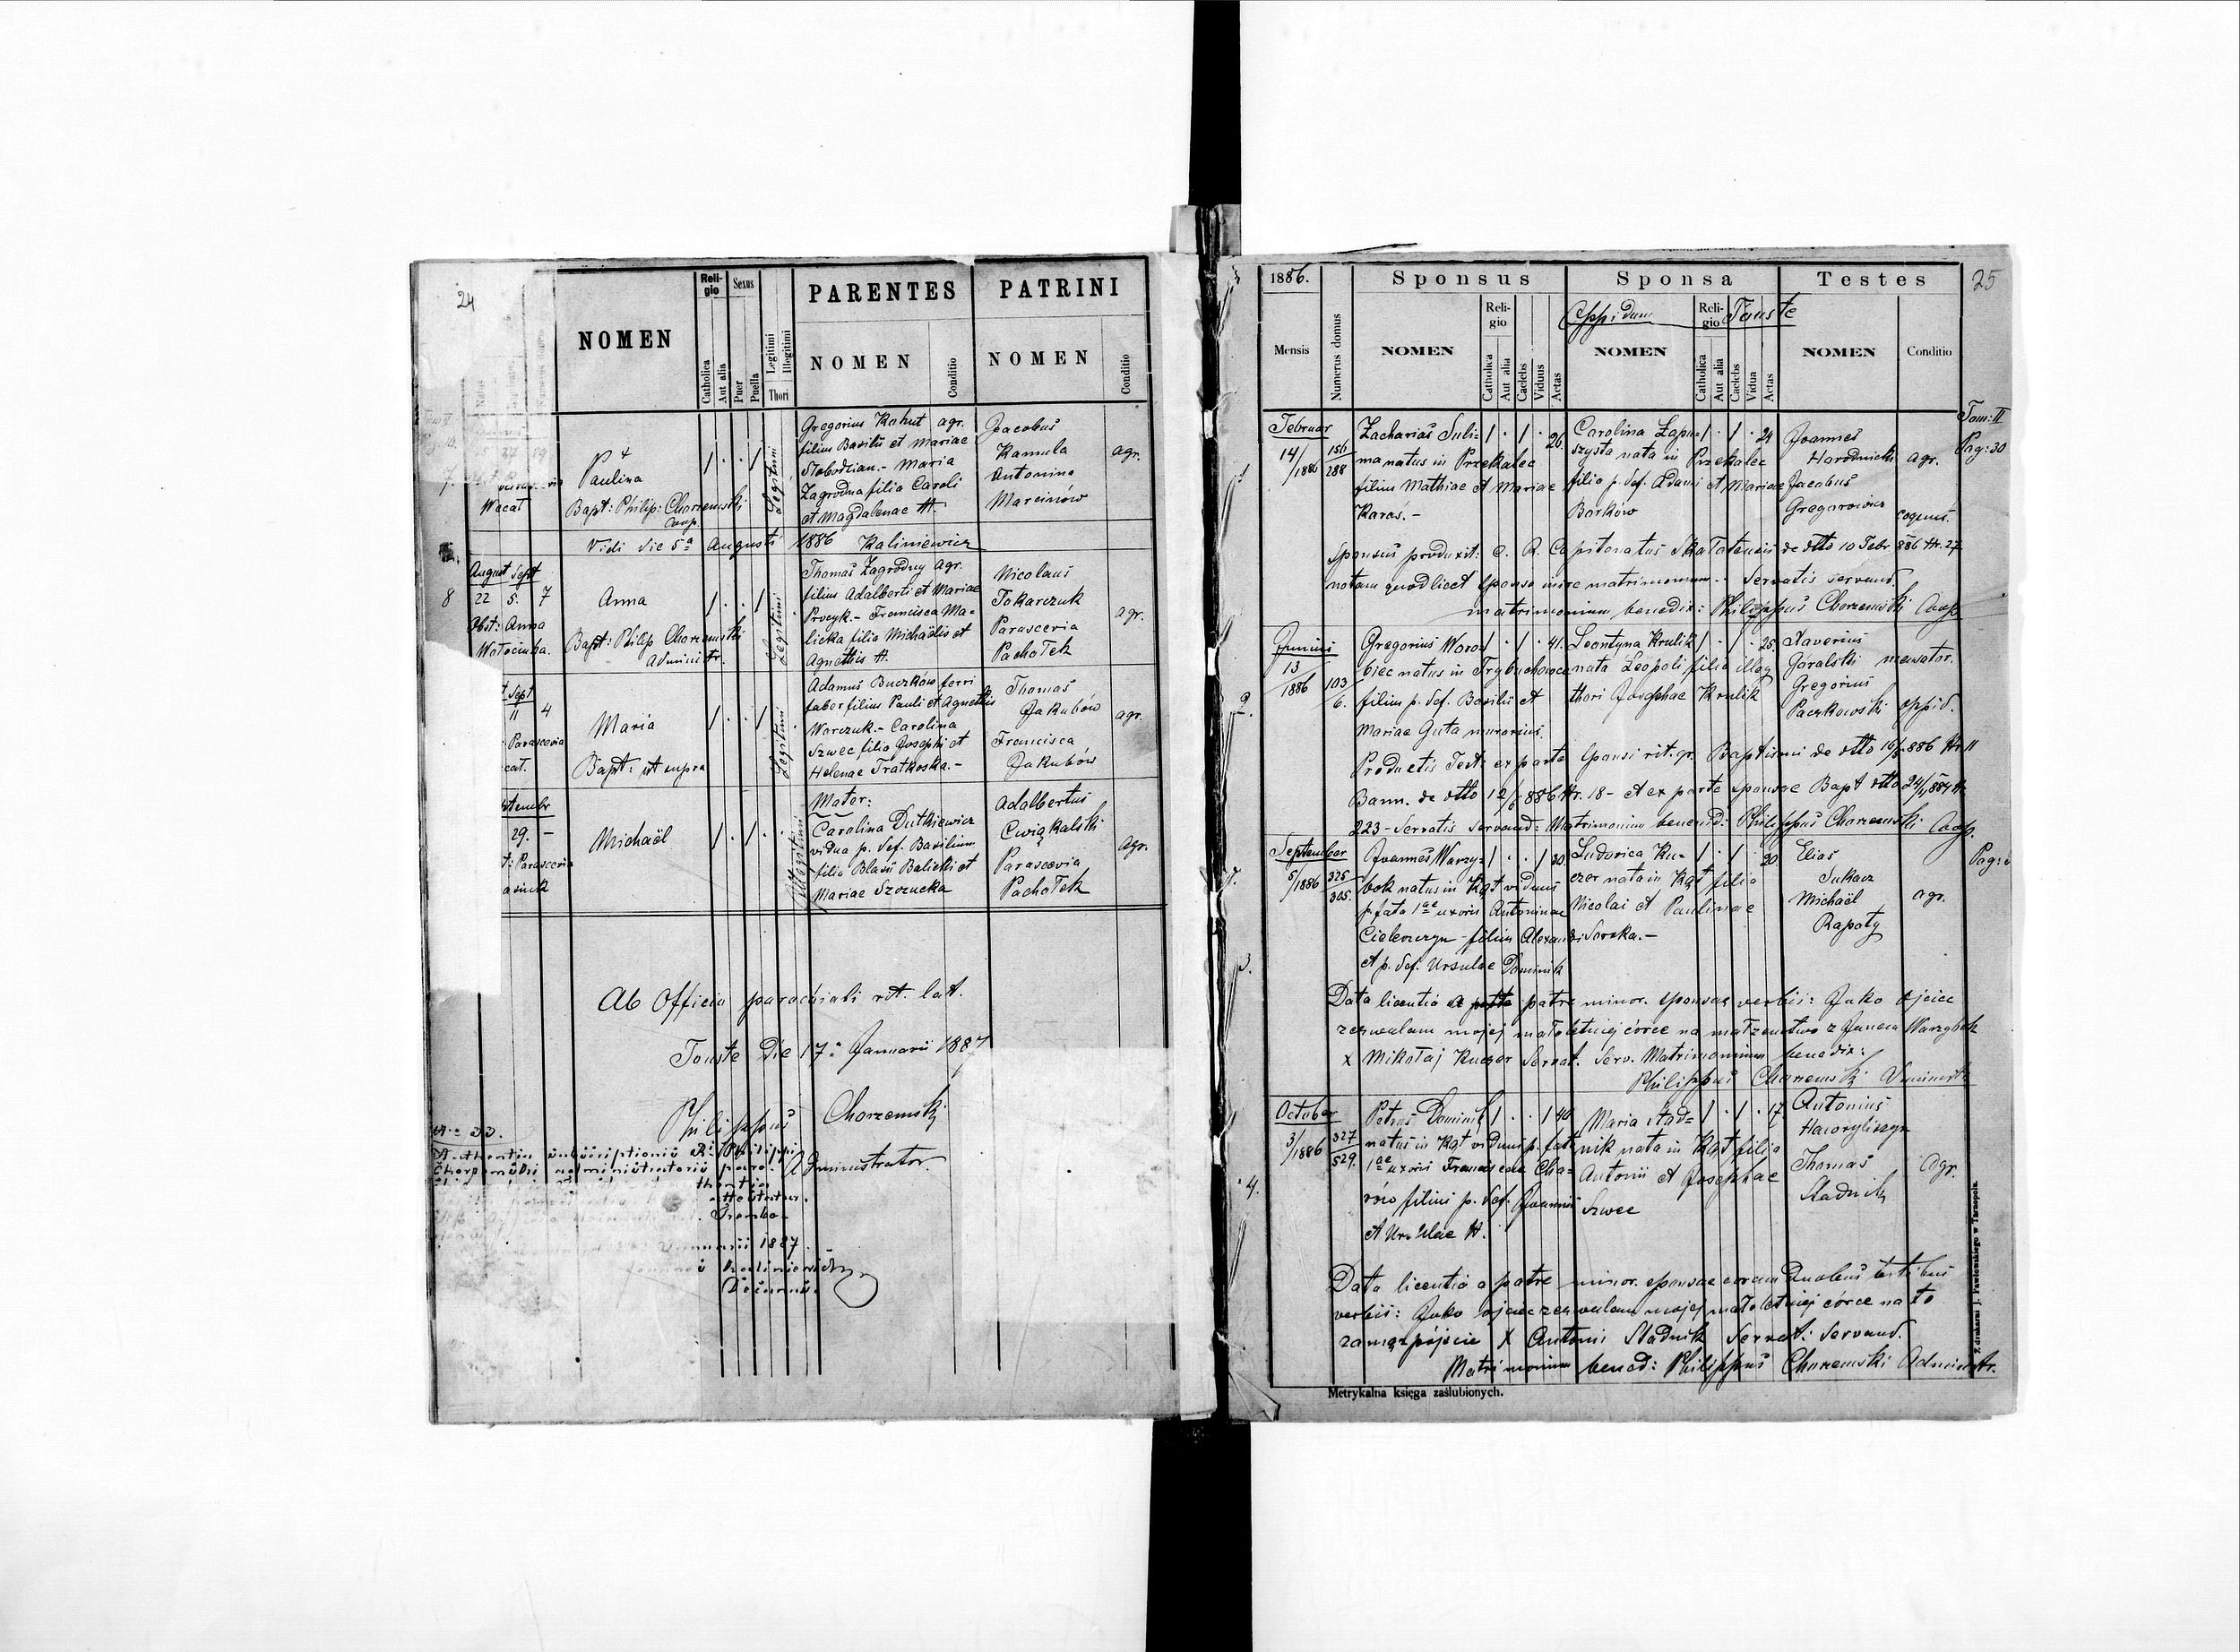 24
NOMEN
Religio
Sexus
Catholica
Aut alia
Puer
Puella
Legitimi
Illegitimi
Thori
PARENTES
NOMEN
Conditio
PATRINI
NOMEN
Conditio
7.
Wacat
Paulina
Bapt: Philip: Chorzemski
Coop.
Legitimi
Gregorius Kohut agr.
filius Basilii et Mariae
Slobodzian.- Maria
Zagrodna filia Caroli
et Magdalenae H.
Jacobus
Kamula
Antonina
Marcinów
agr.
Vidi die 5ª Augusti 1886 Kaliniewicz
8
August Sept
22 5. 7
Obst: Anna
Wołocinha.
Anna
Bapt: Philip Chorzemski
Administr.
Legitimi
Thomas Zagrodny agr.
filius Adalberti et Mariae
Procyk.- Francisca Ma-
licka filia Michaëlis et
Agnethis H.
Nicolaus
Tokarczuk
Parascevia
Pachołek
agr.
Sept
11 4
Parascevia
cat.
Maria
Bapt: ut supra
Legitimi
Adamus Buczków ferri
faber filius Pauli et Agnethis
Warczuk.- Carolina
Szwec filia Josephi et
Helenae Tratkoska.-
Thomas
Jakubów
Francisca
Jakubów
agr.
29. -
t: Parascevia
Michaël
Illegitimi
Mater:
Carolina Dutkiewicz
vidua p. def. Basilium
filia Blasii Balicki et
Mariae Szozucka
Adalbertus
Cwiąkalski
Parascevia
Pachołek
agr.
Ab Officio parochiali rit. lat.
Touste Die 17ª Januarii 1887
Philippus Chorzemski
Administrator.
25
1886.
Sponsus
Sponsa
Testes
Oppidum Touste
Mensis
Numerus domus
NOMEN
Religio
Catholica
Aut alia
Caelebs
Viduus
Aetas
NOMEN
Religio
Catholica
Aut alia
Caelebs
Vidua
Aetas
NOMEN
Conditio
Tom: II
Pag: 30
1
Februar
14/1886
156
288
Zacharias Suli=
ma natus in Przekalec
filius Mathiae et Mariae
Karas.-
26
Carolina Łapu=
szysta nata in Przekalec
filia p. def. Adami et Mariae
Borków
24
Joannes
Horodnicki agr.
Jacobus
Gregorowicz coquus.
Sponsus produxit: C. R. Capitanatus Skałatensis de dtto 10 Febr. 886 Nr. 27
notam quod licet sponso inire matrimonium.- Servatis servand.
matrimonium benedix: Philippus Chorzemski Coop.
2.
Junius
13
1886
103
6.
Gregorius Woro=
biec natus in Trybuchowce
filius p. def. Basilii et
Mariae Guta murarius.
41.
Leontyna Krulik
nata Leopoli filia illeg
thori Josephae Krulik
25
Xaverius
Góralski mercator.
Gregorius
Paczkowski oppid.
Productis Test: ex parte Sponsi rit. gr. Baptismi de dtto 16/5 886 Nr. 11
Bann. de dtto 12/6 886 Nr. 18- et ex parte sponsae Bapt dtto 24/1 884 Nr
223 - Servatis servand: Matrimonium benedix: Philippus Chorzemski Coop.
3.
September
5/1886
325
305.
Joannes Warzy=
bok natus in Kąt viduus
p. fata 1ae uxoris Antoninae
Cielenczyn - filius Alexandri
et p. def. Ursulae Dominik
30
Ludovica Ku=
czer nata in Kąt filia
Nicolai et Paulinae
Soroka.-
20
Elias
Sukacz
Michaël
Rapaty
agr.
Data licentia a patre minor. sponsae verbis: Jako ojciec
zezwalam mojej małoletniej córce na małżeństwo z Janem Warzybok
x Mikołaj Kuczer Servat. Serv. Matrimonium benedix:
Philippus Chorzemski Administr.
4.
October
3/1886
327
529.
Petrus Dominik
natus in Kąt viduus p. fata
1ae uxoris Franciscae Cha=
rów filius p. def. Joannis
et Ursulae H.
40
Maria Stad=
nik nata in Kąt filia
Antonii et Josephae
Szwec
17
Antonius
Haworyliszyn
Thomas
Stadnik
agr.
Data licentia a patre minor. sponsae coram duobus testibus
verbis: Jako ojciec zezwalam mojej małoletniej córce na to
zamążpójście X Antoni Stadnik Servat: Servand.
Matrimonium bened: Philippus Chorzemski Administr.
Metrykalna księga zaślubionych.
Z drukarni J. Pawłowskiego w Tarnopolu.